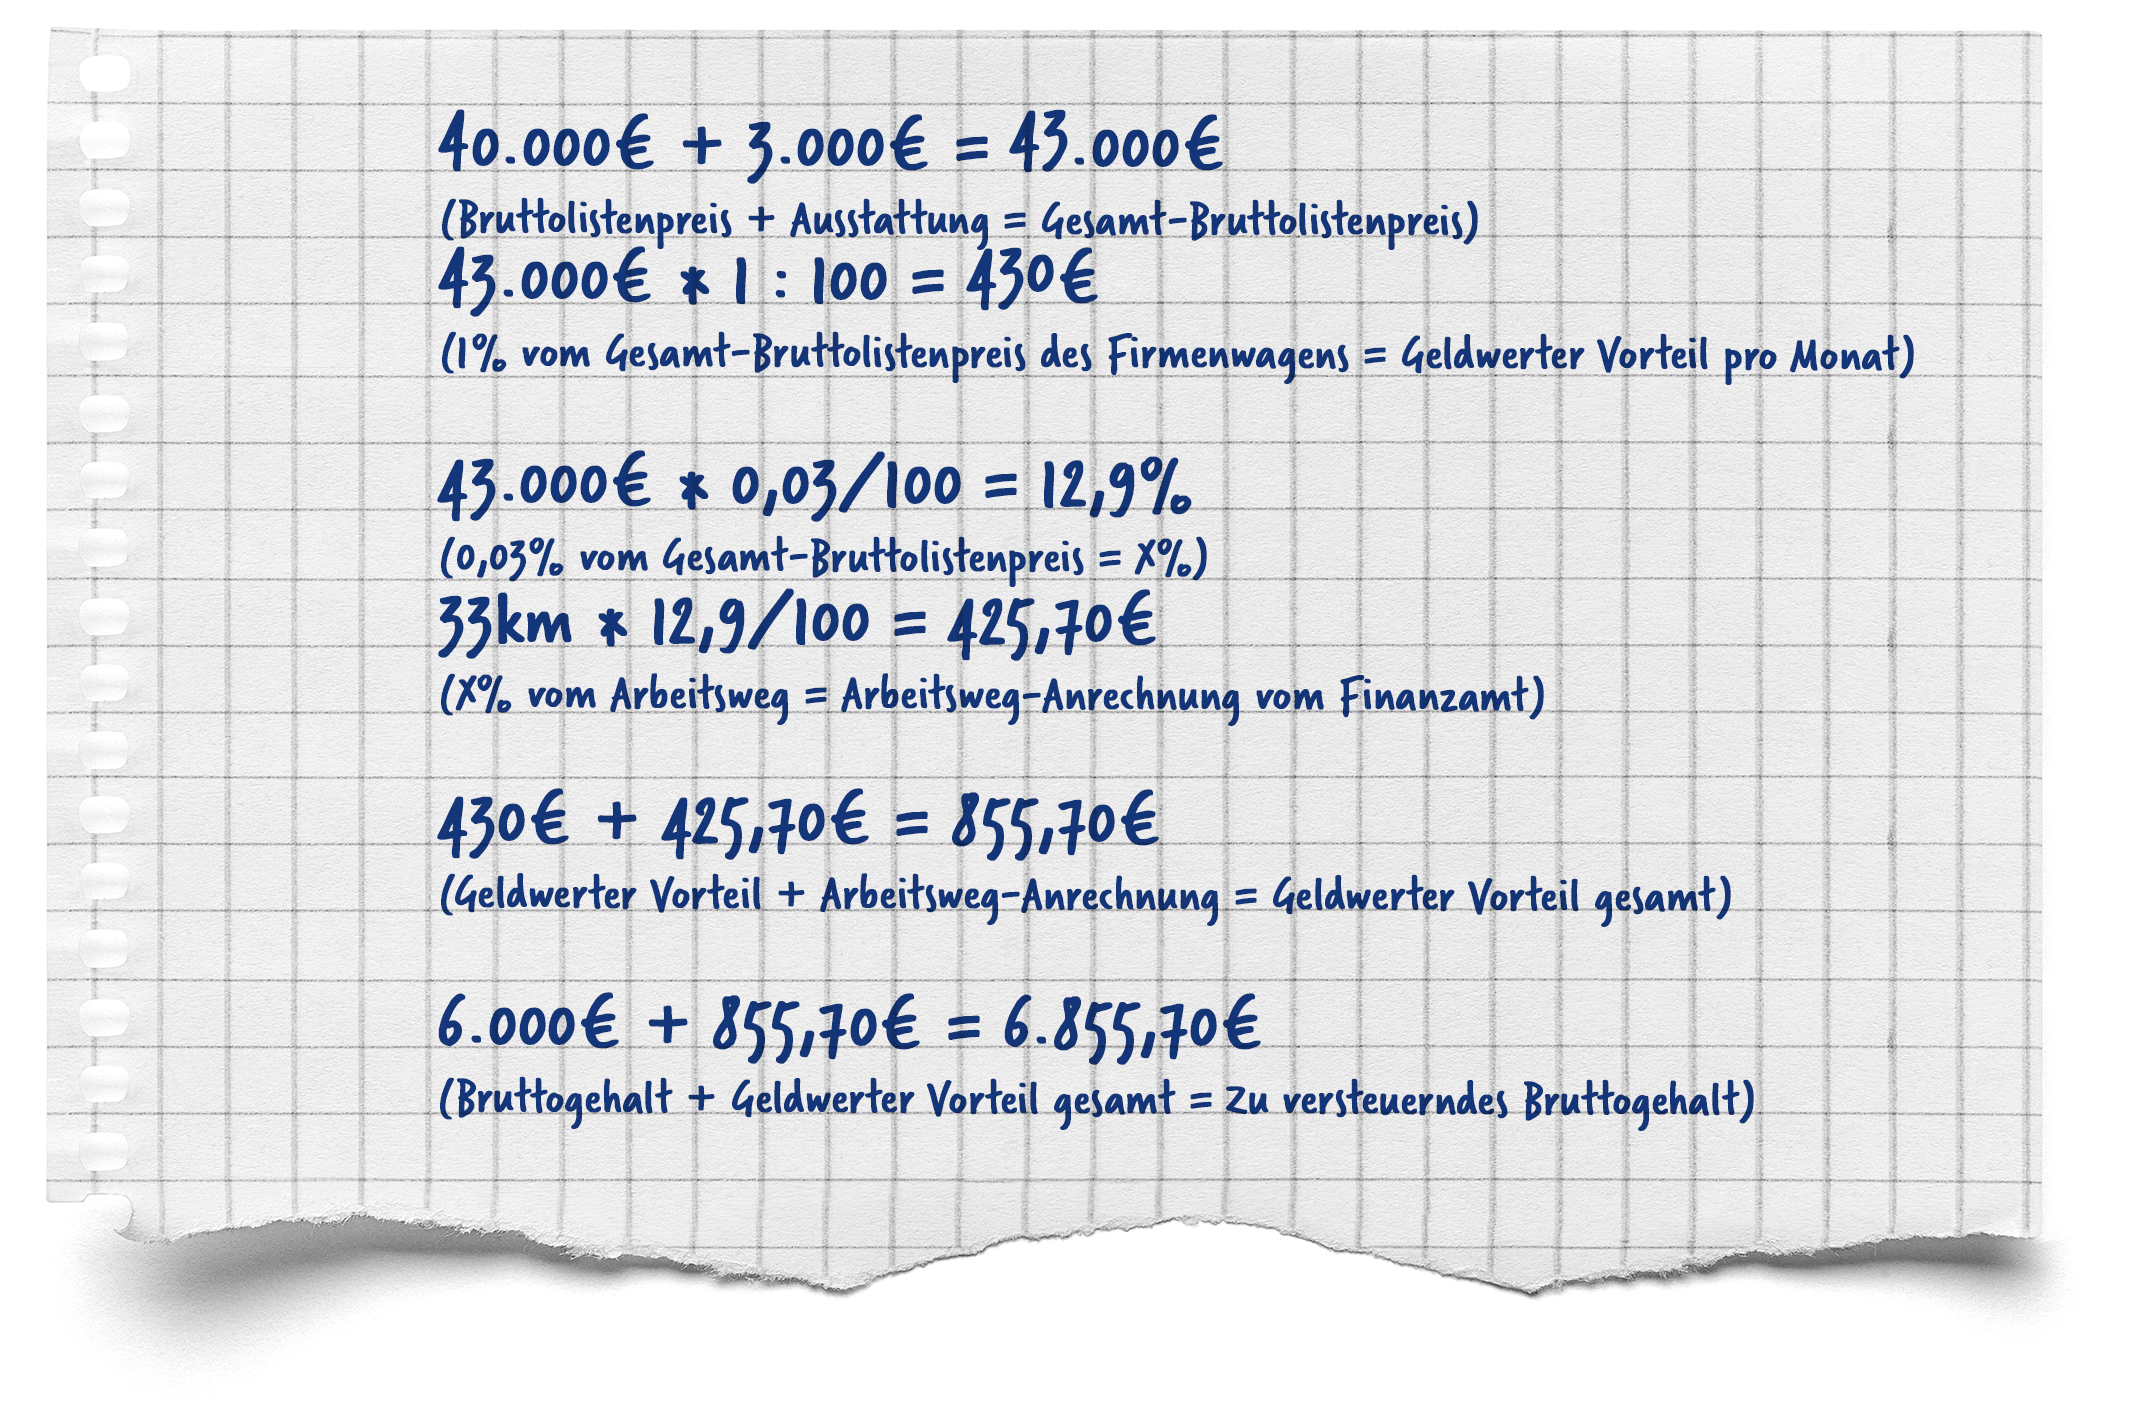 40.000€ + 3.000€ = 43.000€
(Bruttolistenpreis + Ausstattung = Gesamt-Bruttolistenpreis)
43.000€ * 1 : 100 = 430€
(1% vom Gesamt-Bruttolistenpreis des Firmenwagens = Geldwerter Vorteil pro Monat)
43.000€ * 0,03/100 = 12,9%
(0,03% vom Gesamt-Bruttolistenpreis = X%)
33km * 12,9/100 = 425,70€
(X% vom Arbeitsweg = Arbeitsweg-Anrechnung vom Finanzamt)
430€ + 425,70€ = 855,70€
(Geldwerter Vorteil + Arbeitsweg-Anrechnung = Geldwerter Vorteil gesamt)
6.000€ + 855,70€ = 6.855,70€
(Bruttogehalt + Geldwerter Vorteil gesamt = Zu versteuerndes Bruttogehalt)